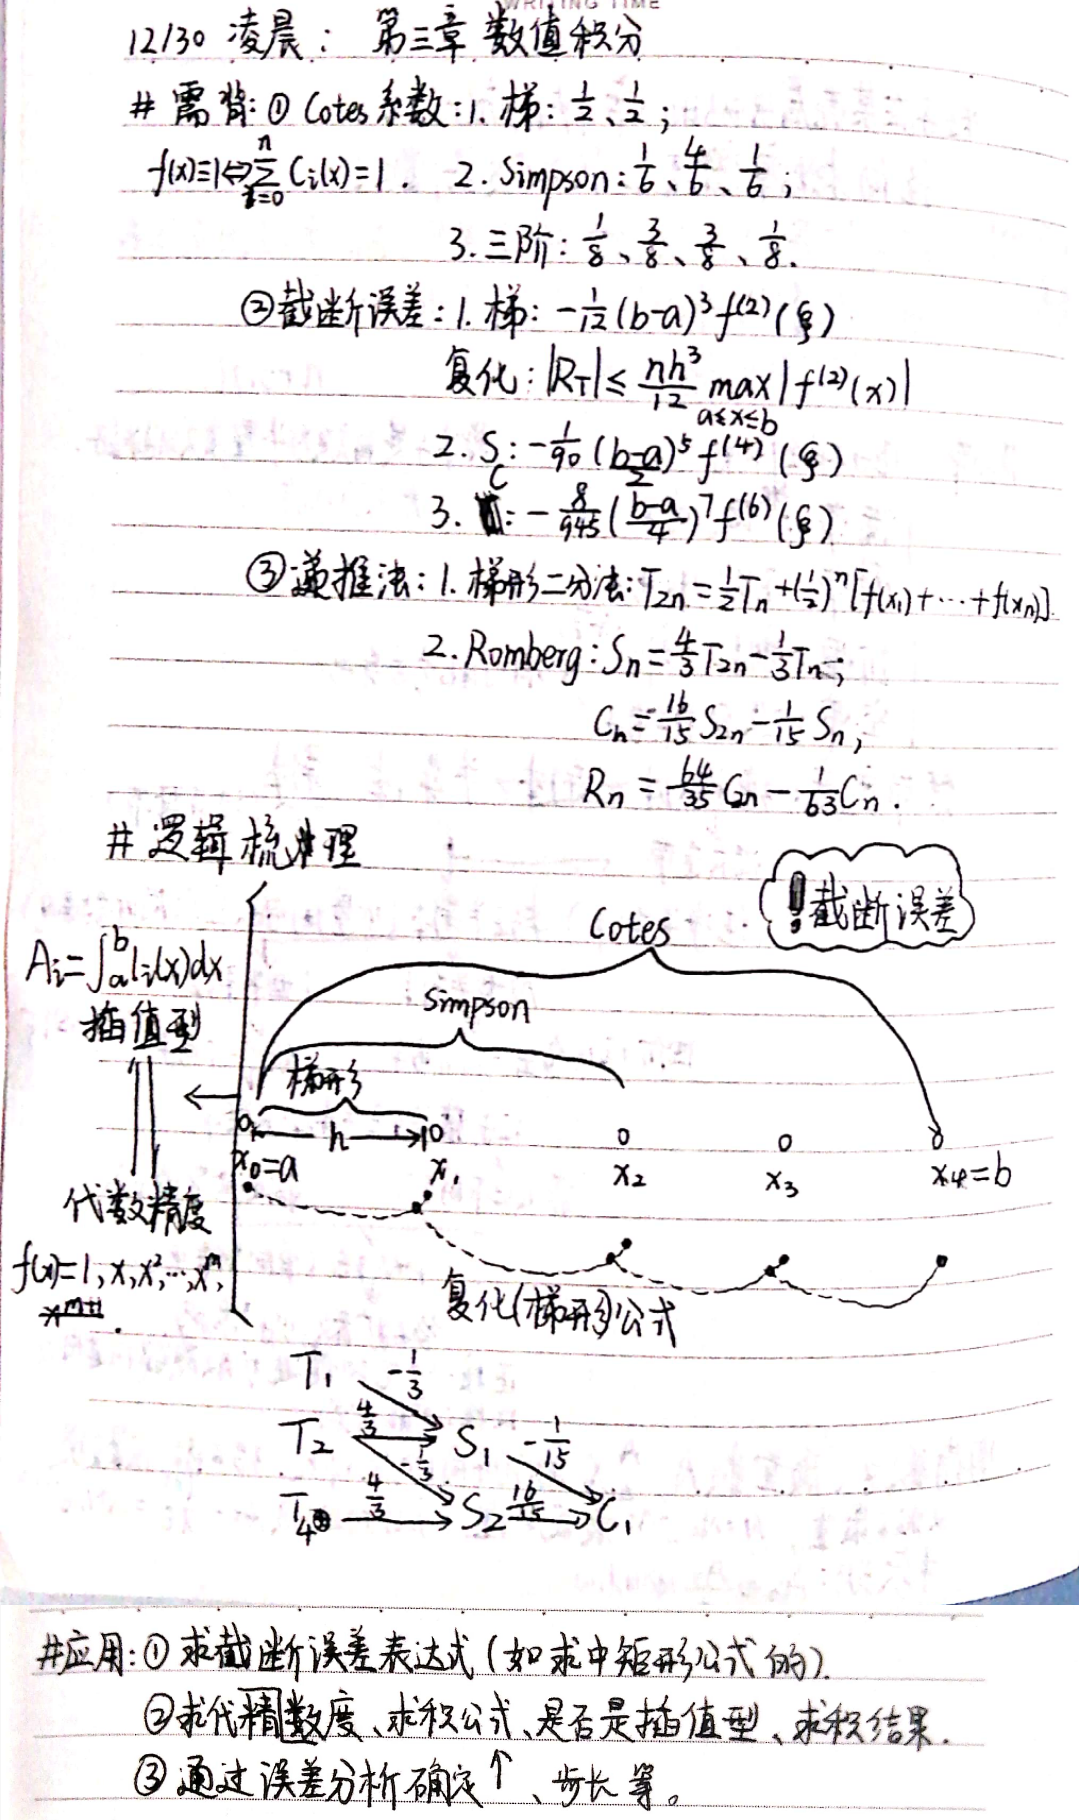 WRITING TIME
12/30 凌晨: 第三章 数值积分
# 需背: ① Cotes 系数: 1. 梯: 1/2、1/2;
f(x)≡1⇔∑_{i=0}^{n} C_i(x)=1. 2. Simpson: 1/6、4/6、1/6;
3. 三阶: 1/8、3/8、3/8、1/8.
②截断误差: 1. 梯: -1/12 (b-a)³ f⁽²⁾(ξ)
复化: |R_T| ≤ nh³/12 max_{a≤x≤b} |f⁽²⁾(x)|
2. S: -1/90 ((b-a)/2)⁵ f⁽⁴⁾(ξ)
3. C: -8/945 ((b-a)/4)⁷ f⁽⁶⁾(ξ)
③递推法: 1. 梯形二分法: T_{2n} = 1/2 T_n + (1/2)ⁿ [f(x₁)+⋯+f(x_n)].
2. Romberg: S_n = 4/3 T_{2n} - 1/3 T_n;
C_n = 16/15 S_{2n} - 1/15 S_n;
R_n = 64/35 C_{2n} - 1/63 C_n.
# 逻辑梳理
!截断误差
Cotes
A_i = ∫_a^b l_i(x)dx
插值型
Simpson
梯形
h
x₀=a x₁ x₂ x₃ x₄=b
代数精度
f(x)=1, x, x², ⋯, x^m,
x^{m+1}.
复化(梯形)公式
T₁ -1/3
T₂ 4/3 S₁ -1/15
-1/3
T₄ 4/3 S₂ 16/15 C₁
#应用: ① 求截断误差表达式 (如求中矩形公式的).
②求代精数度、求积公式、是否是插值型、求积结果.
③ 通过误差分析确定↑、步长等。